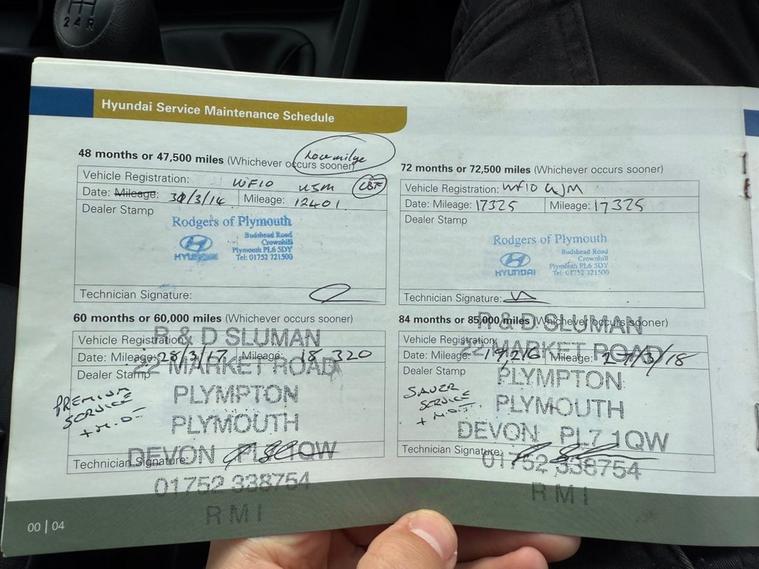 2 4 R
Hyundai Service Maintenance Schedule
48 months or 47,500 miles (Whichever occurs sooner)
Vehicle Registration: WF10
Date: Mileage: Mileage: 12401
Dealer Stamp
Rodgers of Plymouth
HYUNDAI
Budshead Road
Crownhill
Plymouth PL6 5DY
Tel: 01752 721500
Technician Signature:
72 months or 72,500 miles (Whichever occurs sooner)
Vehicle Registration: WF10
Date: Mileage: 17325 Mileage: 17325
Dealer Stamp
Rodgers of Plymouth
HYUNDAI
Budshead Road
Crownhill
Plymouth PL6 5DY
Tel: 01752 721500
Technician Signature:
60 months or 60,000 miles (Whichever occurs sooner)
Vehicle Registration:
Date: Mileage: 28/3/17 Mileage: 18 320
Dealer Stamp
PREMIUM
SERVICE
+ M.O.T
R & D SLUMAN
22 MARKET ROAD
PLYMPTON
PLYMOUTH
DEVON PL7 1QW
01752 338754
RMI
Technician Signature:
84 months or 85,000 miles (Whichever occurs sooner)
Vehicle Registration:
Date: Mileage: 19,216 Mileage: 27/3/18
Dealer Stamp
SAVER
SERVICE
+ M.O.T.
R & D SLUMAN
22 MARKET ROAD
PLYMPTON
PLYMOUTH
DEVON PL7 1QW
01752 338754
RMI
Technician Signature:
00 | 04